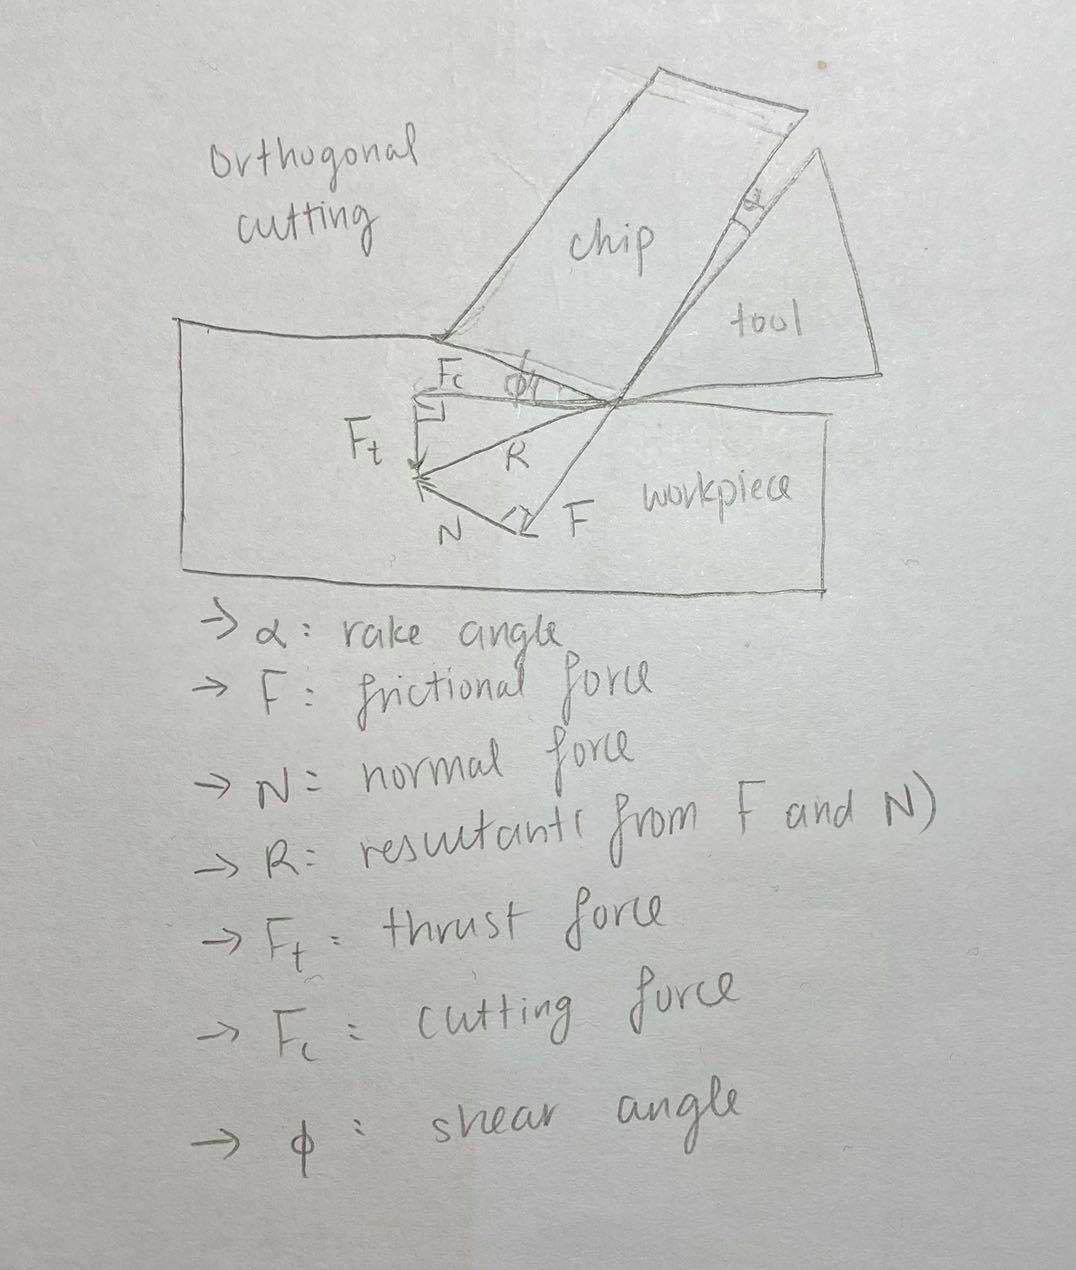 Orthogonal
cutting
chip
α
tool
Fc
ϕ
Ft
R
workpiece
N
F
→ α: rake angle
→ F: frictional force
→ N: normal force
→ R: resultant (from F and N)
→ Ft: thrust force
→ Fc: cutting force
→ ϕ: shear angle